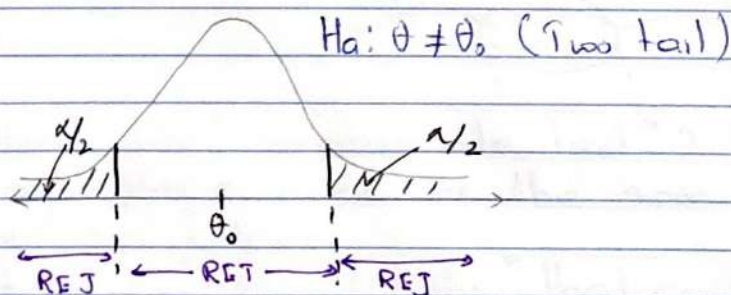 Ha: θ ≠ θ₀ (Two tail)
α/2 α/2
θ₀
REJ RET REJ